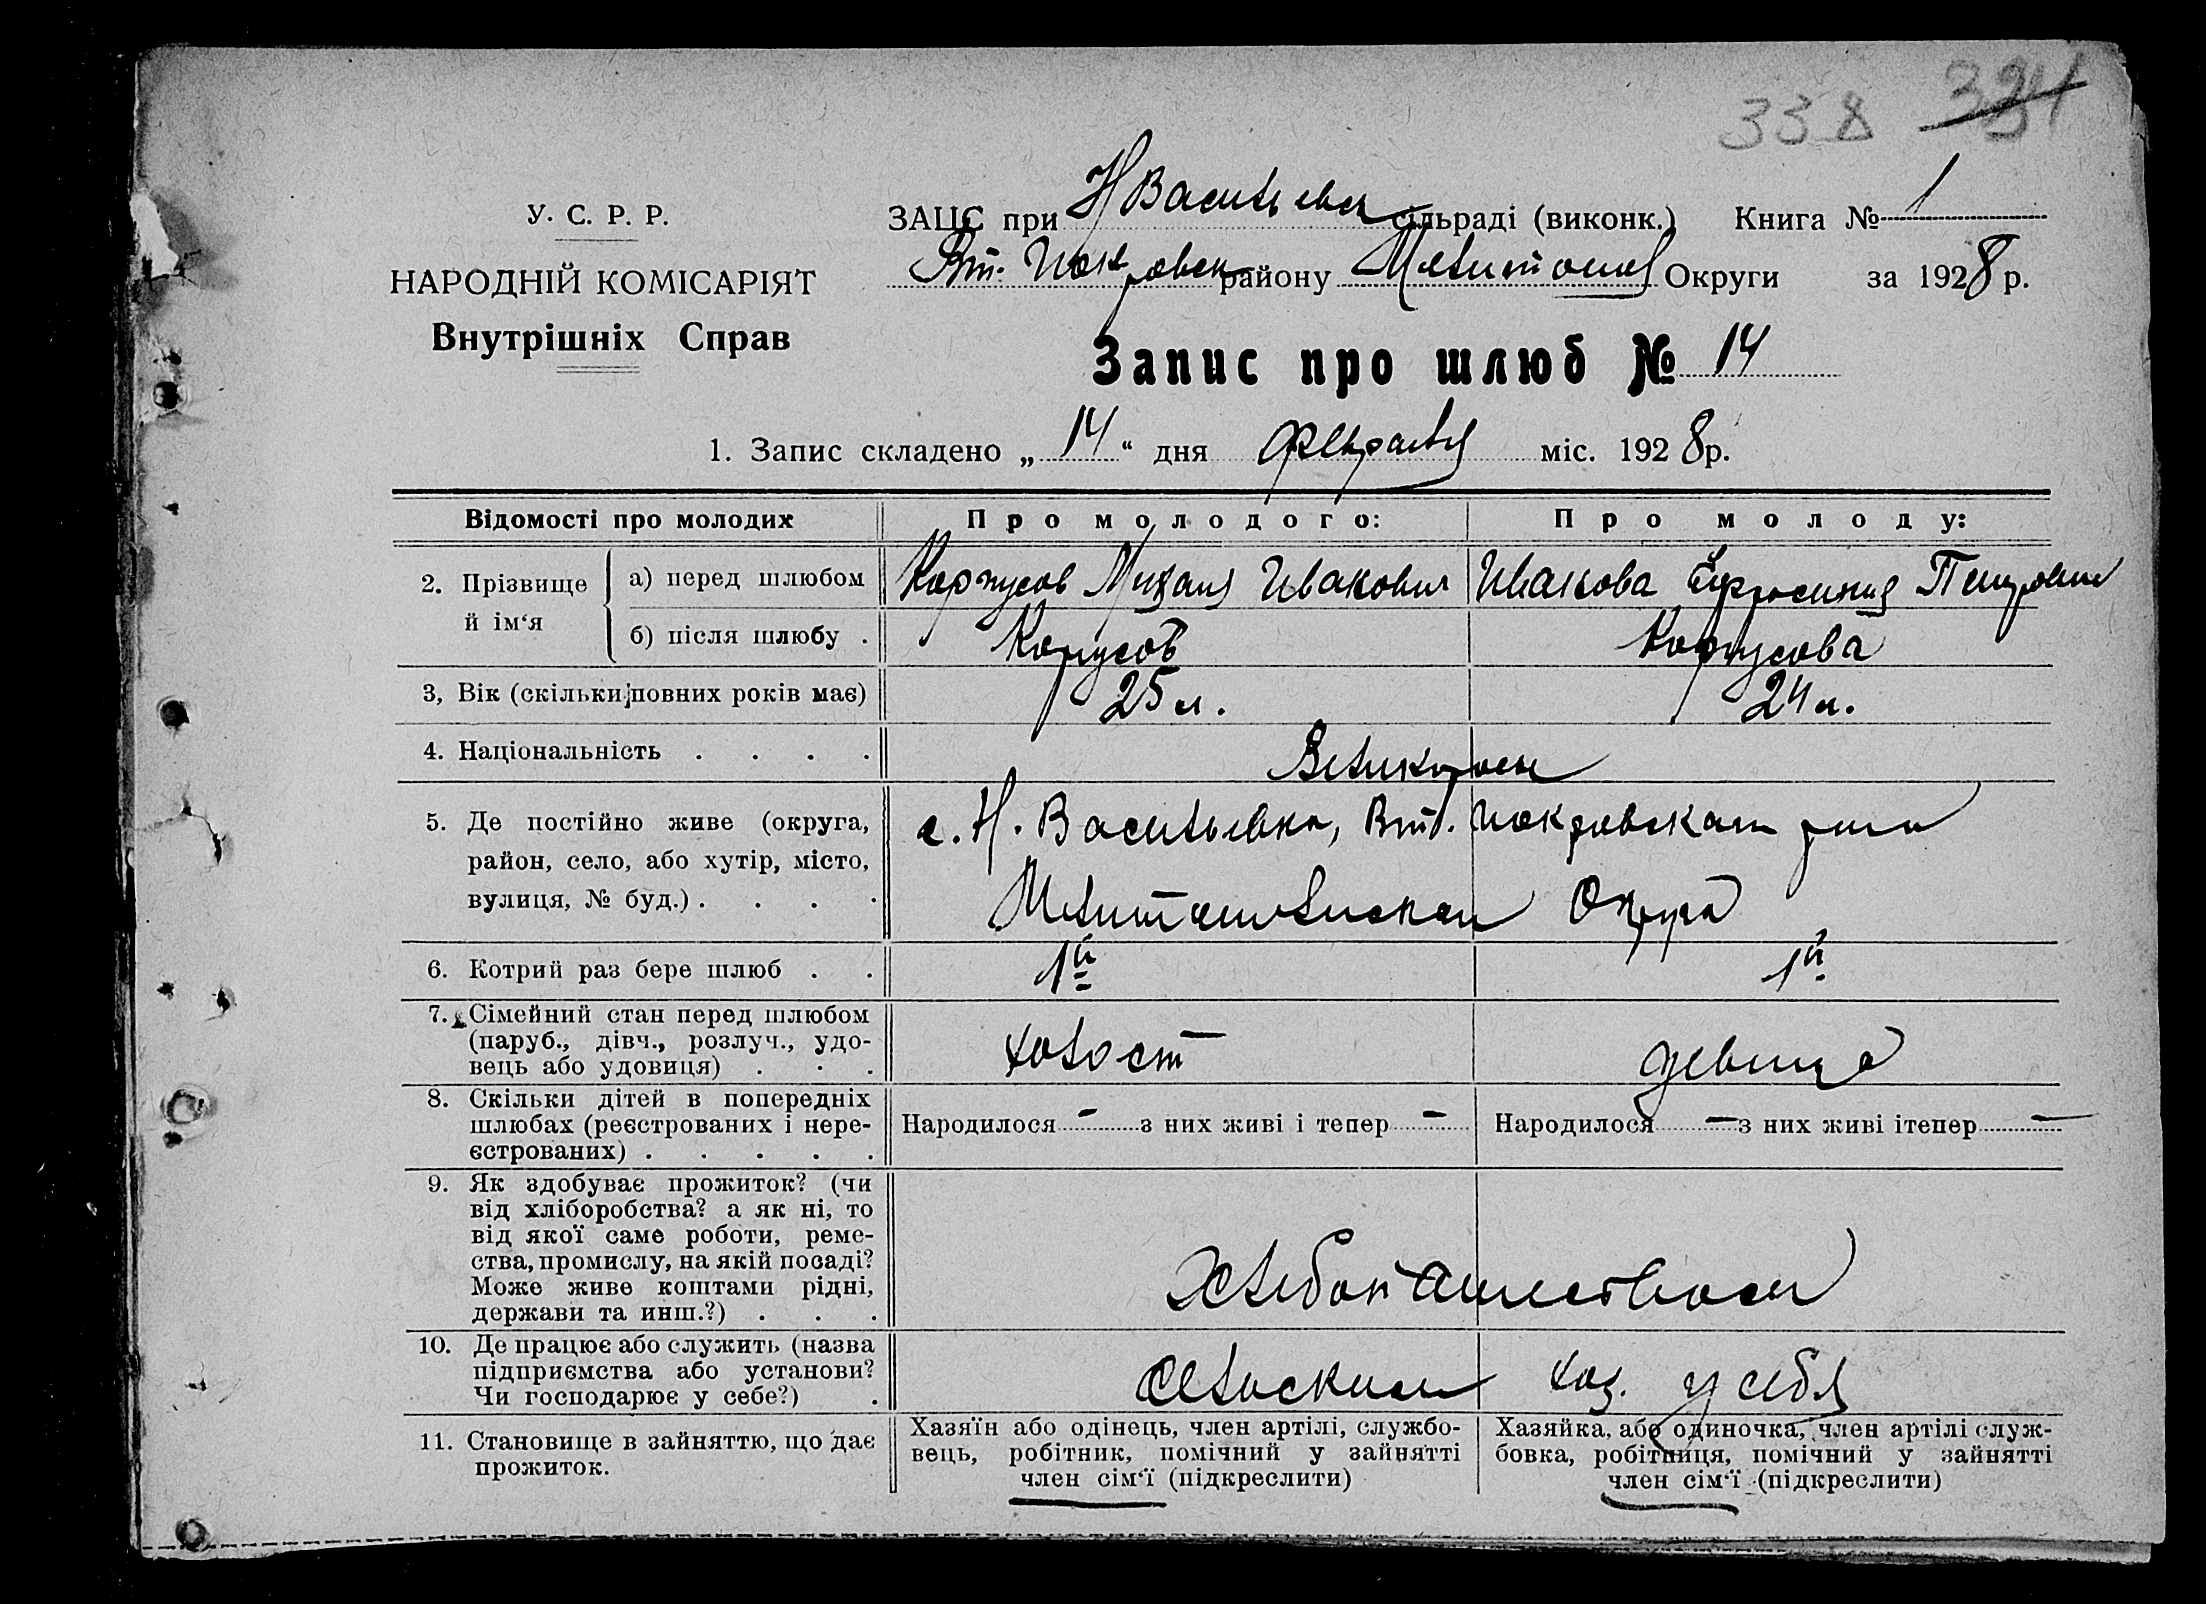 338 334
У. С. Р. Р.
ЗАЦС при Н Васильевск сільраді (виконк.) Книга № 1
Вт. Покровск району Мелитопол Округи за 1928 р.
НАРОДНІЙ КОМІСАРІЯТ
Внутрішніх Справ
Запис про шлюб № 14
1. Запис складено „ 14 “ дня февраля міс. 1928 р.
Відомості про молодих
Про молодого:
Про молоду:
2. Прізвище й ім‘я
а) перед шлюбом
Корпусов Михаил Иванович
Иванова Ефросиния Петровна
б) після шлюбу .
Корпусов
Корпусова
3, Вік (скільки повних років має)
25 л.
24 л.
4. Національність . . . .
Великоросы
5. Де постійно живе (округа,
район, село, або хутір, місто,
вулиця, № буд.) . . . .
с. Н. Васильевка, Вт. Покровского района
Мелитопольской Округа
6. Котрий раз бере шлюб . .
1й
1й
7. Сімейний стан перед шлюбом
(паруб., дівч., розлуч., удо-
вець або удовиця) . . .
холост
девица
8. Скільки дітей в попередніх
шлюбах (реєстрованих і нере-
єстрованих) . . . . .
Народилося – з них живі і тепер –
Народилося – з них живі ітепер –
9. Як здобуває прожиток? (чи
від хліборобства? а як ні, то
від якої саме роботи, реме-
ства, промислу, на якій посаді?
Може живе коштами рідні,
держави та инш.?) . . .
Хлебопашеством
10. Де працює або служить (назва
підприємства або установи?
Чи господарює у себе?) .
Сельским хоз. у себя
11. Становище в зайняттю, що дає
прожиток.
Хазяїн або одінець, член артілі, службо-
вець, робітник, помічний у зайнятті
член сім‘ї (підкреслити)
Хазяйка, або одиночка, член артілі служ-
бовка, робітниця, помічний у зайнятті
член сім‘ї (підкреслити)